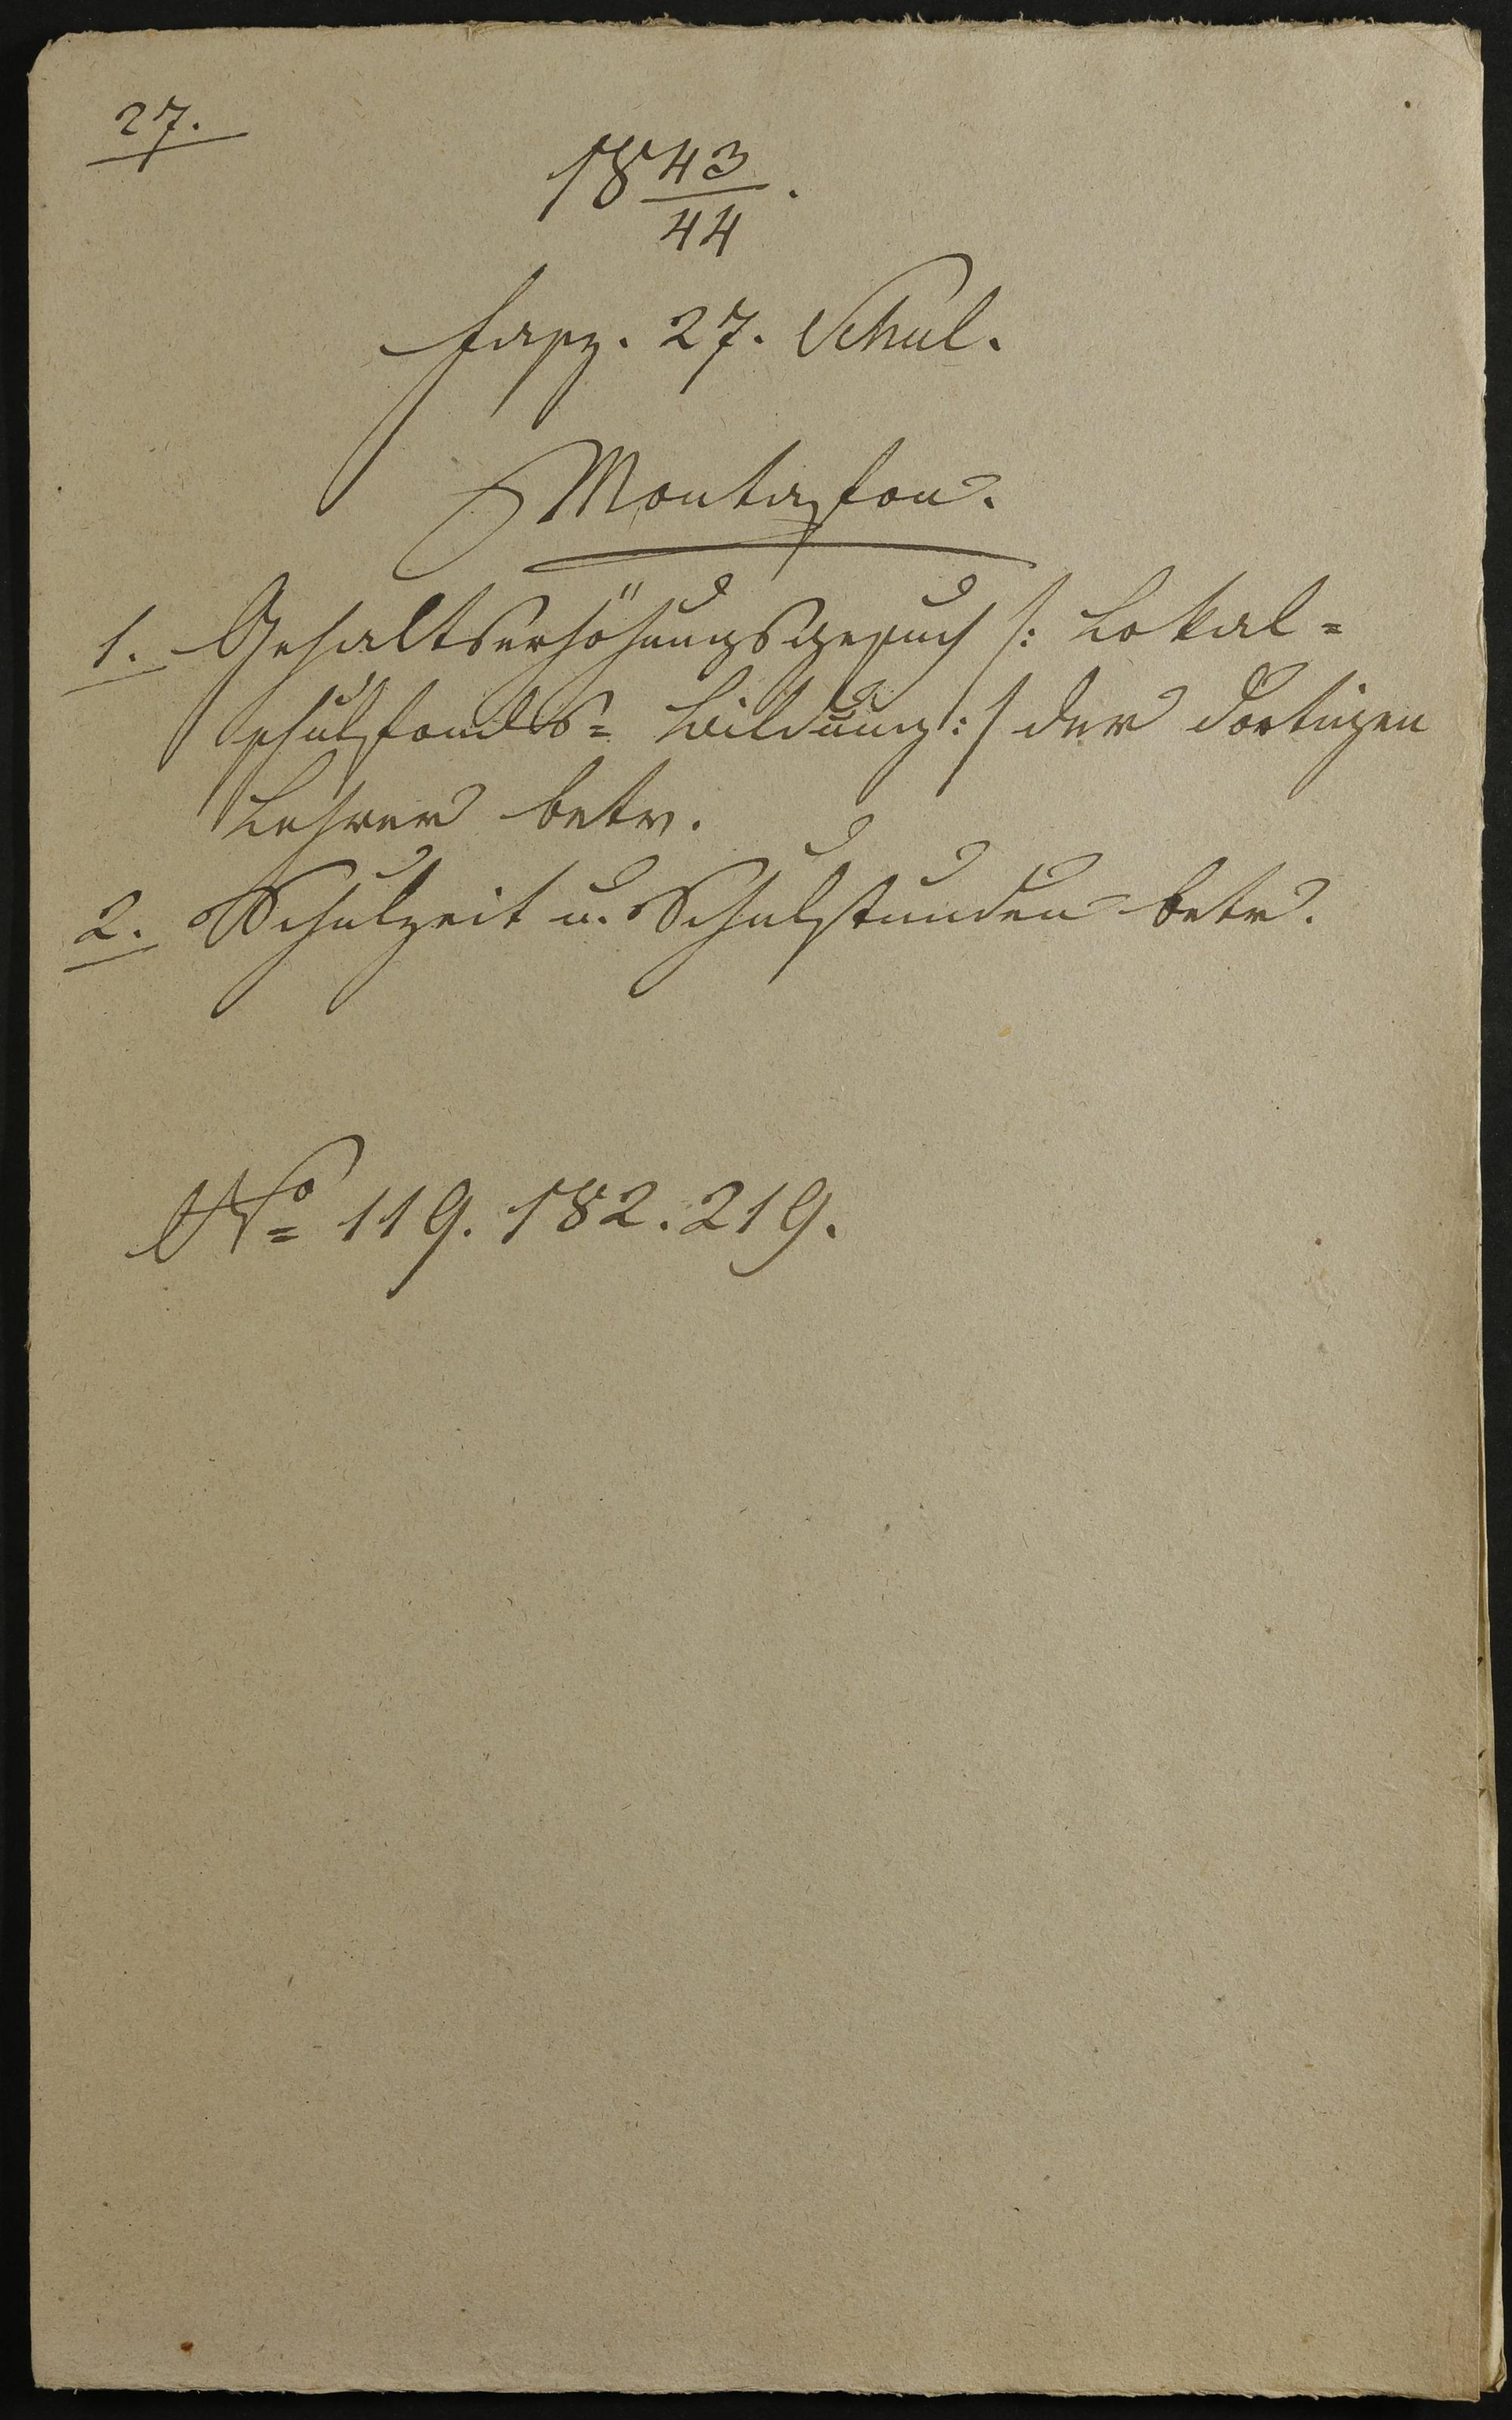 27.
18 43/44.
Fasz. 27. Schul.
Montafon.
1. Gehaltserhöhungsgesuch /: Lokal=
schulfonds= Bildung :/ der dortigen
Lehrer betr.
2. Schulzeit u. Schulstunden betr.
No 119. 182. 219.